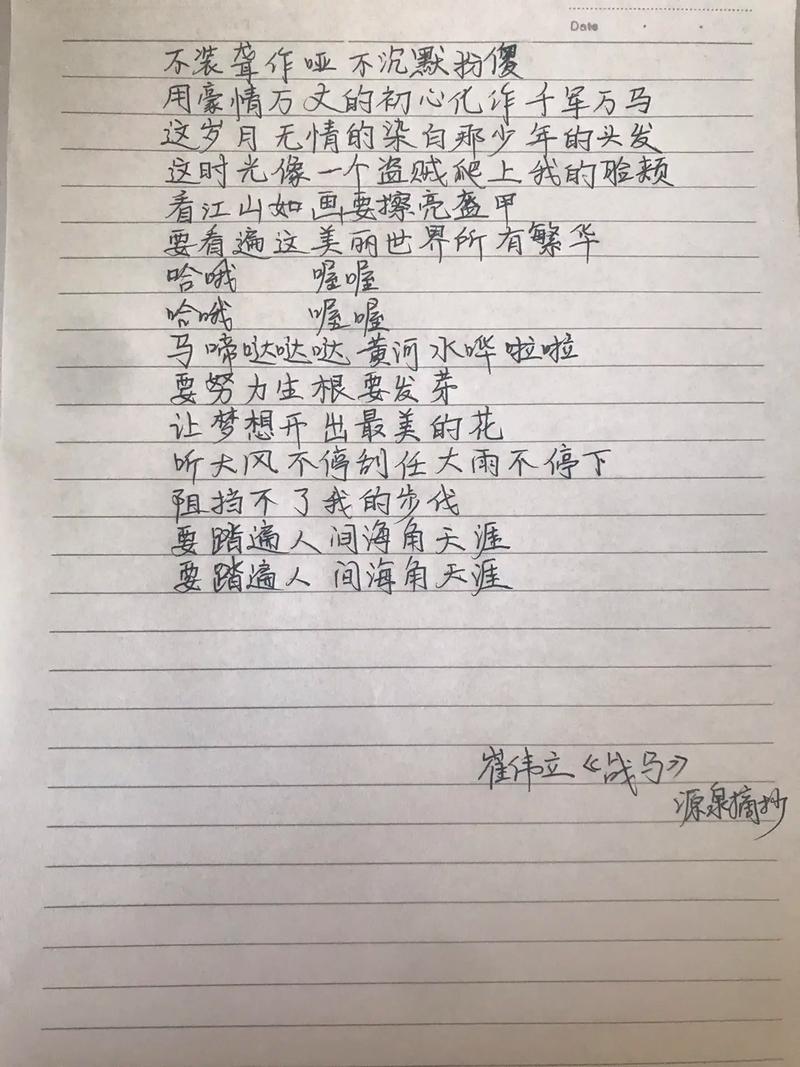 Date
不装聋作哑 不沉默扮傻
用豪情万丈的初心化作千军万马
这岁月无情的染白那少年的头发
这时光像一个盗贼爬上我的脸颊
看江山如画要擦亮盔甲
要看遍这美丽世界所有繁华
哈哦 喔喔
哈哦 喔喔
马啼哒哒哒 黄河水哗啦啦
要努力生根要发芽
让梦想开出最美的花
听大风不停刮任大雨不停下
阻挡不了我的步伐
要踏遍人间海角天涯
要踏遍人间海角天涯
崔伟立《战马》
源泉摘抄